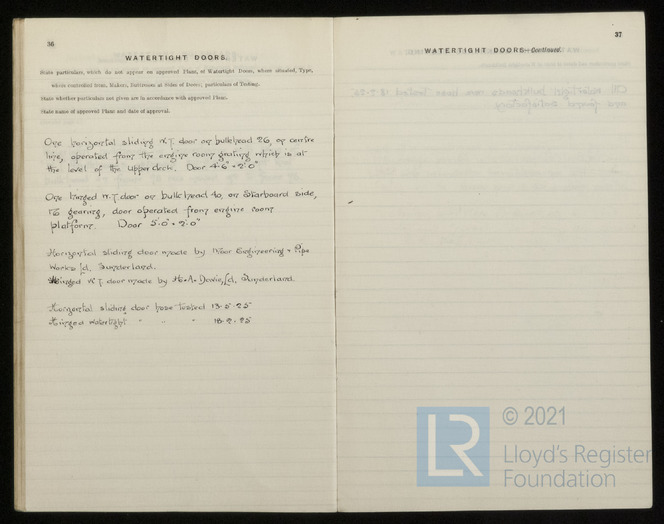 36
WATERTIGHT DOORS.
State particulars, which do not appear on approved Plans, of Watertight Doors, where situated, Type,
where controlled from, Makers, Particulars of Testing.
State whether particulars not given are in accordance with approved Plans.
State name of approved Plans and date of approval.
One horizontal sliding W.T. door on bulkhead 26, on centre
line, operated from the engine room grating which is at
the level of the upper deck. Door 4'6" × 2'0"
One hinged W.T. door on bulkhead 40, on Starboard side,
no gearing, door operated from engine room
platform. Door 5'0" × 2'0"
Horizontal sliding door made by Engineering & Pipe
Works Ld. Sunderland.
Hinged W.T. door made by Ld, Sunderland.
Horizontal sliding door hose tested 13.5.25
Hinged watertight " " " 18.2.25
37
WATERTIGHT DOORS—Continued.
LR
© 2021
Lloyd's Register
Foundation